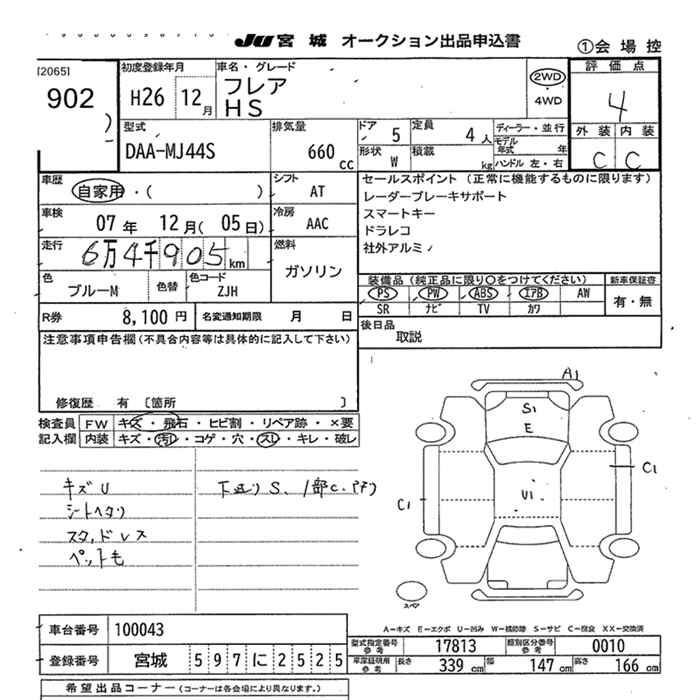 JU 宮城 オークション出品申込書 ①会場控
[2065]
902
初度登録年月
H26 12月
車名・グレード
フレア
HS
2WD
・
4WD
評価点
4
外装 内装
C C
型式
DAA-MJ44S
排気量
660 cc
ドア 5
定員 4人
形状 W
積載 kg
ディーラー・並行
モデル年式 年
ハンドル 左・右
車歴
自家用・( )
シフト
AT
車検
07年 12月(05日)
冷房
AAC
走行
6万4千905km
燃料
ガソリン
色
ブルーM
色替
色コード
ZJH
R券 8,100円
名変通知期限 月 日
セールスポイント(正常に機能するものに限ります)
レーダーブレーキサポート
スマートキー
ドラレコ
社外アルミ
装備品(純正品に限り○をつけてください)
PS PW ABS エアB AW
SR ナビ TV カワ
新車保証書
有・無
後日品
取説
注意事項申告欄(不具合内容等は具体的に記入して下さい)
修復歴 有 〔箇所 〕
検査員記入欄
FW キズ・飛石・ヒビ割・リペア跡・×要
内装 キズ・汚レ・コゲ・穴・スレ・キレ・破レ
キズU
シートヘタリ
スタッドレス
ペットも
下廻りS、1部C.
A1
S1
E
U1
C1
C1
スペア
A-キズ E-エクボ U-凹み W-補修跡 S-サビ C-腐食 XX-交換済
車台番号 100043
登録番号 宮城 597に2525
型式指定番号 参考 17813
類別区分番号 参考 0010
車庫証明用 参考 長さ 339cm 幅 147cm 高さ 166cm
希望出品コーナー(コーナーは各会場により異なります。)